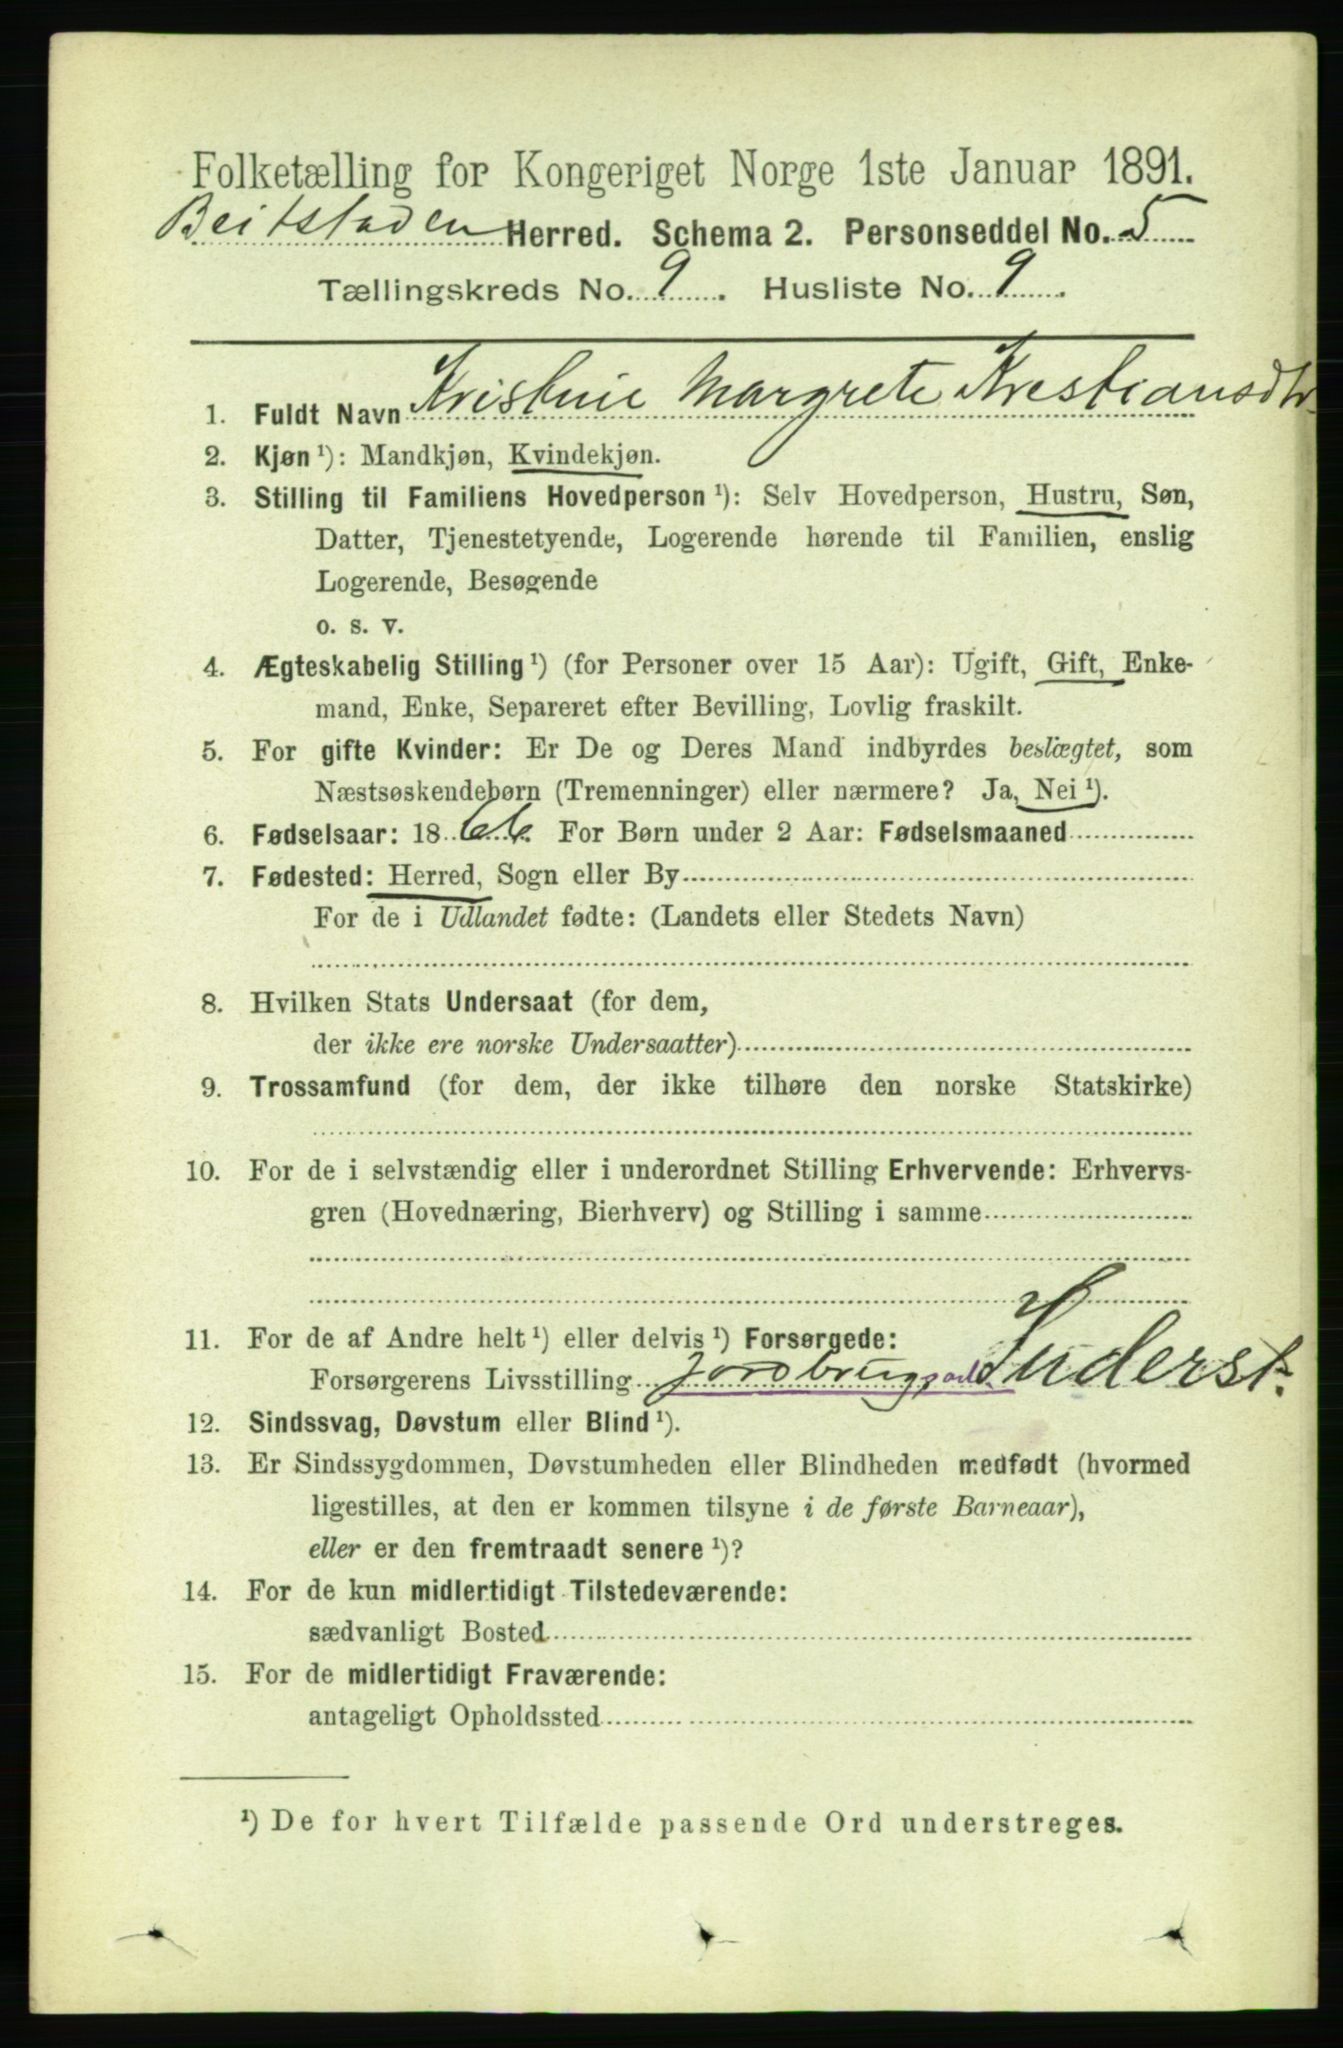 Folketælling for Kongeriget Norge 1ste Januar 1891.
Beitstaden Herred. Schema 2. Personseddel No. 5
Tællingskreds No. 9. Husliste No. 9.
1. Fuldt Navn Kristine Margrete Krestiansdtr
2. Kjøn ¹): Mandkjøn, Kvindekjøn.
3. Stilling til Familiens Hovedperson ¹): Selv Hovedperson, Hustru, Søn,
Datter, Tjenestetyende, Logerende hørende til Familien, enslig
Logerende, Besøgende
o. s. v.
4. Ægteskabelig Stilling ¹) (for Personer over 15 Aar): Ugift, Gift, Enke-
mand, Enke, Separeret efter Bevilling, Lovlig fraskilt.
5. For gifte Kvinder: Er De og Deres Mand indbyrdes beslægtet, som
Næstsøskendebørn (Tremenninger) eller nærmere? Ja, Nei ¹).
6. Fødselsaar: 1866. For Børn under 2 Aar: Fødselsmaaned
7. Fødested: Herred, Sogn eller By
For de i Udlandet fødte: (Landets eller Stedets Navn)
8. Hvilken Stats Undersaat (for dem,
der ikke ere norske Undersaatter)
9. Trossamfund (for dem, der ikke tilhøre den norske Statskirke)
10. For de i selvstændig eller i underordnet Stilling Erhvervende: Erhvervs-
gren (Hovednæring, Bierhverv) og Stilling i samme
11. For de af Andre helt ¹) eller delvis ¹) Forsørgede:
Forsørgerens Livsstilling Jordbrug Inderst.
12. Sindssvag, Døvstum eller Blind ¹).
13. Er Sindssygdommen, Døvstumheden eller Blindheden medfødt (hvormed
ligestilles, at den er kommen tilsyne i de første Barneaar),
eller er den fremtraadt senere ¹)?
14. For de kun midlertidigt Tilstedeværende:
sædvanligt Bosted
15. For de midlertidigt Fraværende:
antageligt Opholdssted
¹) De for hvert Tilfælde passende Ord understreges.